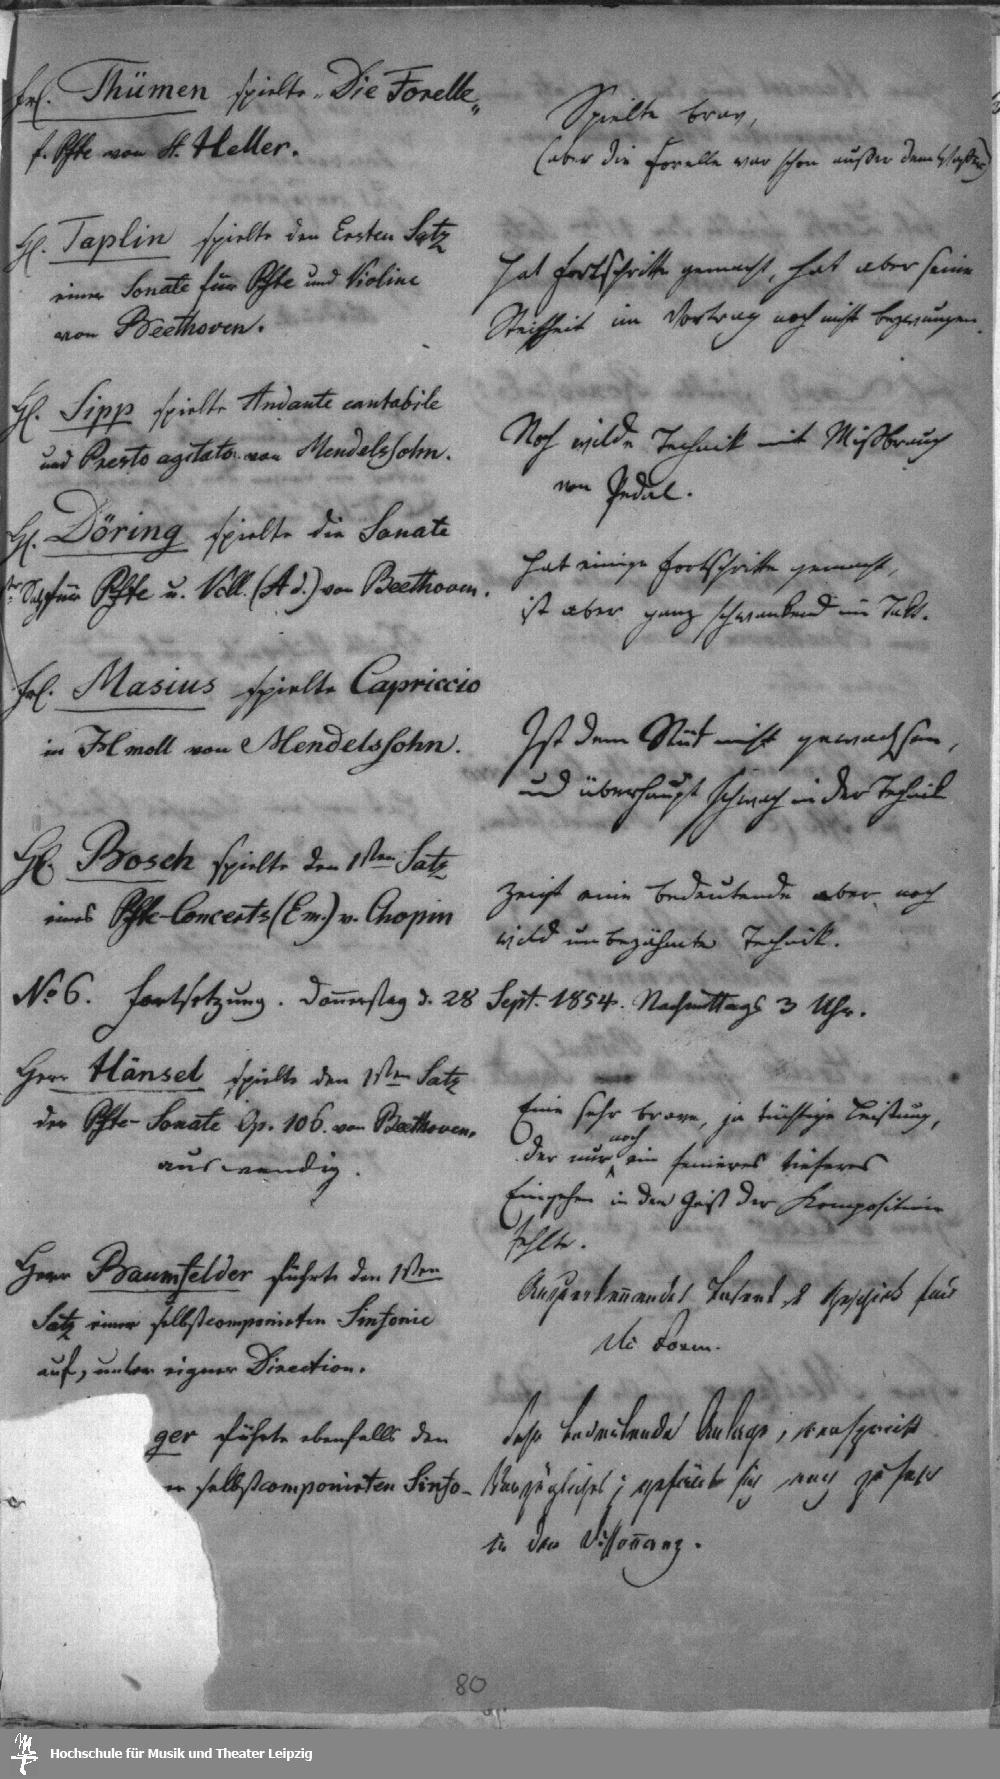 Frl. Thümen spielte „Die Forelle"
f. Pfte von St. Heller.
Spielte brav,
(aber die Forelle war schon außer dem Wasser)
H. Taplin spielte den Ersten Satz
einer Sonate für Pfte und Violine
von Beethoven.
Hat Fortschritte gemacht, hat aber seine
Steifheit im Vortrag noch nicht bezwungen.
H. Sipp spielte Andante cantabile
und Presto agitato von Mendelssohn.
Noch wilde Technik mit Mißbrauch
von Pedal.
H. Döring spielte die Sonate
Satz für Pfte u. Vcll. (A d.) von Beethoven.
Hat einige Fortschritte gemacht,
ist aber ganz schwankend im Takt.
Frl. Masius spielte Capriccio
in H moll von Mendelssohn.
Ist dem Stück nicht gewachsen,
und überhaupt schwach in der Technik
H. Bosch spielte den 1sten Satz
eines Pfte-Concerts (E m.) v. Chopin
Zeigt eine bedeutende aber noch
wild unbezähmte Technik.
No 6. Fortsetzung. Donnerstag d. 28 Sept. 1854. Nachmittags 3 Uhr.
Herr Hänsel spielte den 1sten Satz
der Pfte-Sonate Op. 106. von Beethoven.
auswendig.
Eine sehr brave, ja tüchtige Leistung,
der nur noch ein feineres tieferes
Eingehen in den Geist der Komposition
fehlte.
Herr Baumfelder führte den 1sten
Satz einer selbstcomponirten Sinfonie
auf, unter eigner Direction.
Anzuerkennendes Talent & Geschick für
die Form.
ger führte ebenfalls den
er selbstcomponirten Sinfo-
Sehr bedeutende Anlage, verspricht
Vorzügliches; gefällt sich noch zu sehr
in der Dissonanz.
80
Hochschule für Musik und Theater Leipzig